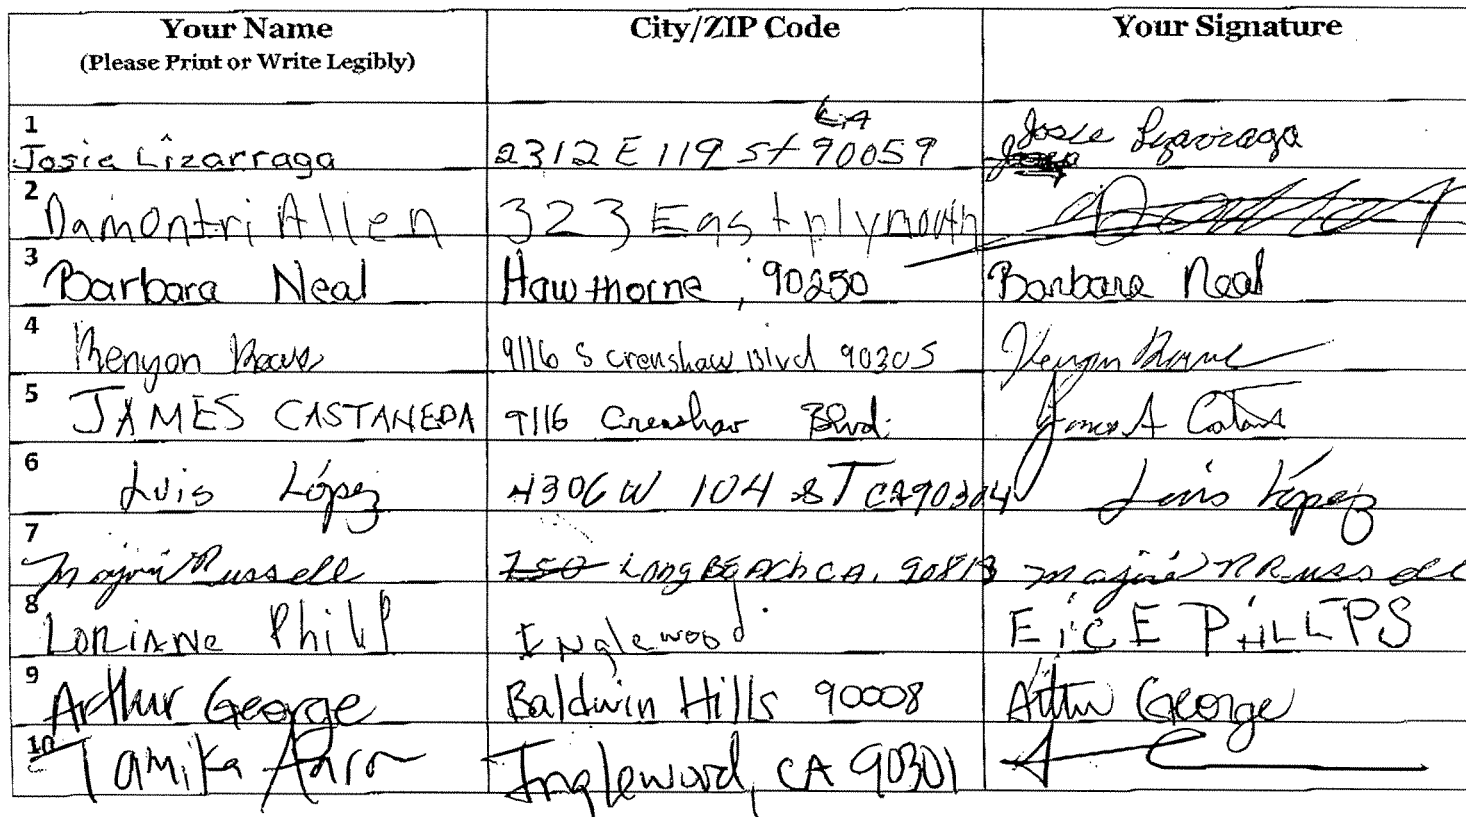 Your Name City/ZIP Code Your Signature
(Please Print or Write Legibly)
1
Josie Lizarraga 2312 E 119 St LA 90059 Josie Lizarraga
2
Damontri Allen 323 East plymouth
3
Barbara Neal Hawthorne, 90250 Barbara Neal
4
Kenyon 9116 S Crenshaw Blvd 90305 Kenyon
5
JAMES CASTANEDA 9116 Crenshaw Blvd. James A
6
Luis López 4306 W 104 ST CA 90304 Luis López
7
Russell Long BEACh CA. 90813 Russell
8
LORIANE Phill Inglewood EiCE PHiLLPS
9
Arthur George Baldwin Hills 90008 Arthur George
10
Tamika Aaron Inglewood, CA 90301